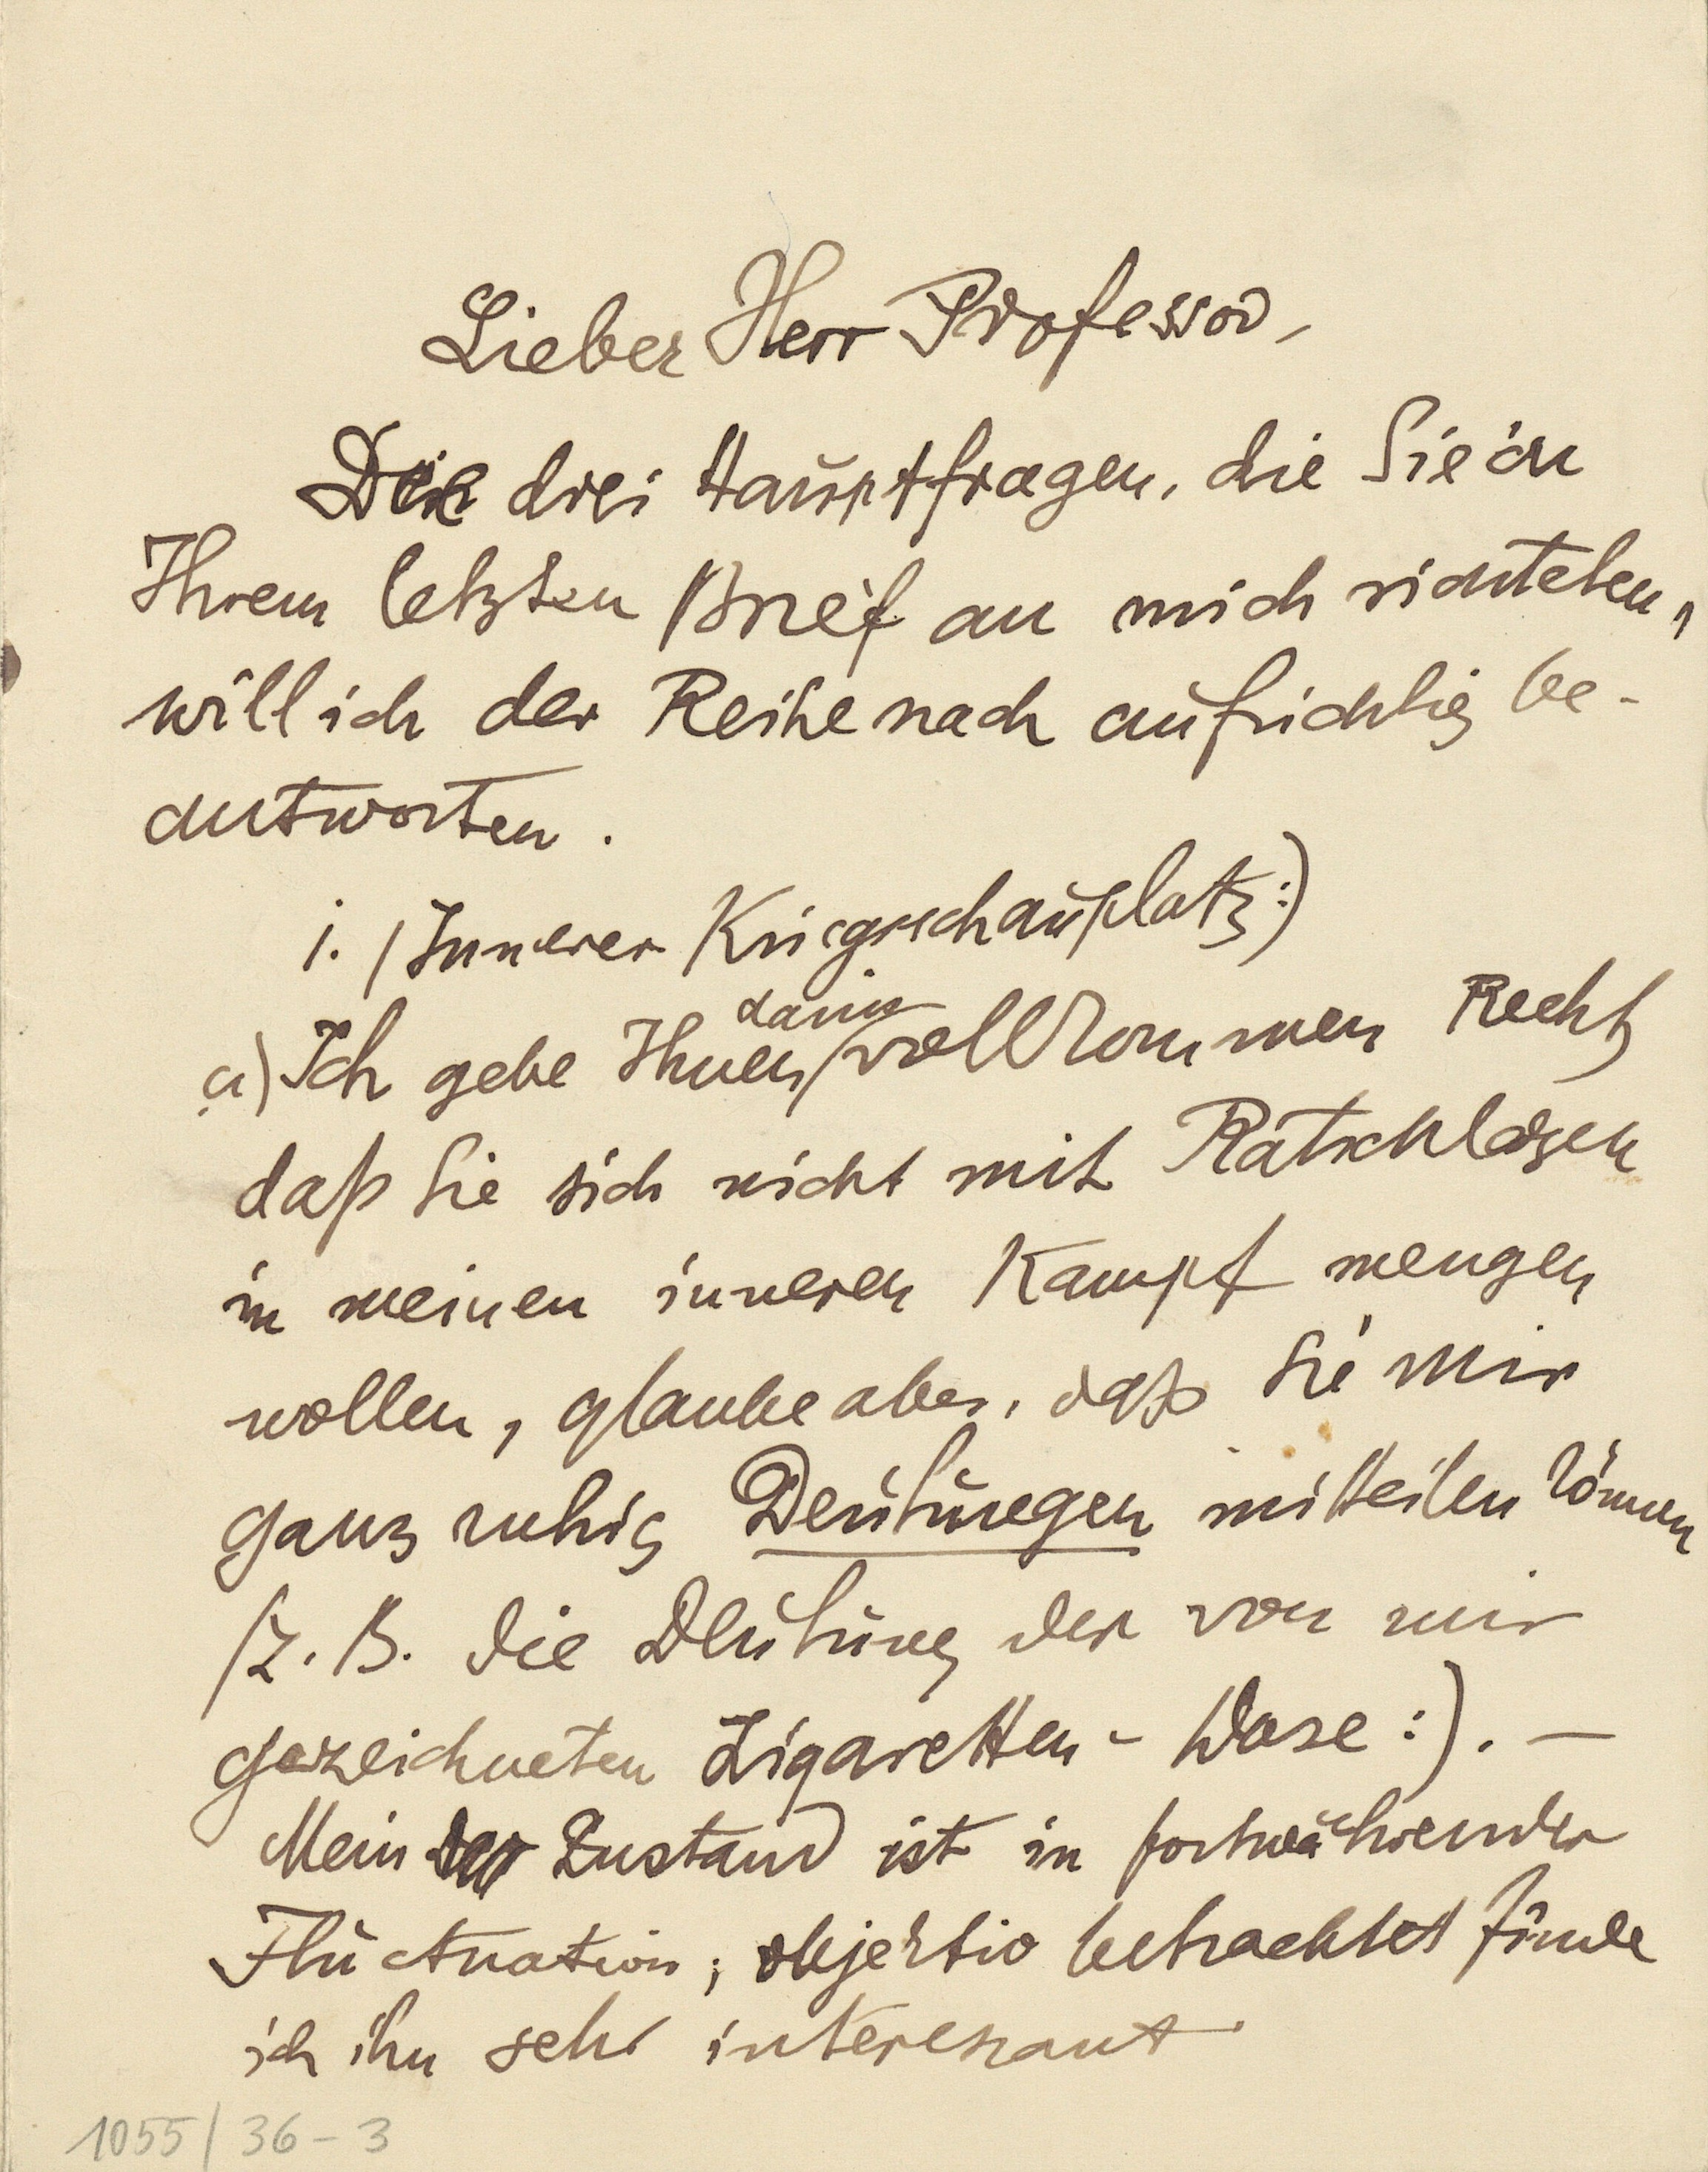 Lieber Herr Professor,
Die drei Hauptfragen, die Sie in
Ihrem letzten Brief an mich richteten,
will ich der Reihe nach aufrichtig be-
antworten.
1. (Innerer Kriegsschauplatz:)
a) Ich gebe Ihnen darin vollkommen Recht,
daß Sie sich nicht mit Ratschlägen
in meinen inneren Kampf mengen
wollen, glaube aber, daß Sie mir
ganz ruhig Deutungen mitteilen können
(z. B. die Deutung der von mir
gezeichneten Zigaretten-Dose:). –
Mein Zustand ist in fortwährender
Fluctuation; objektiv betrachtet finde
ich ihn sehr interessant
1055/36-3